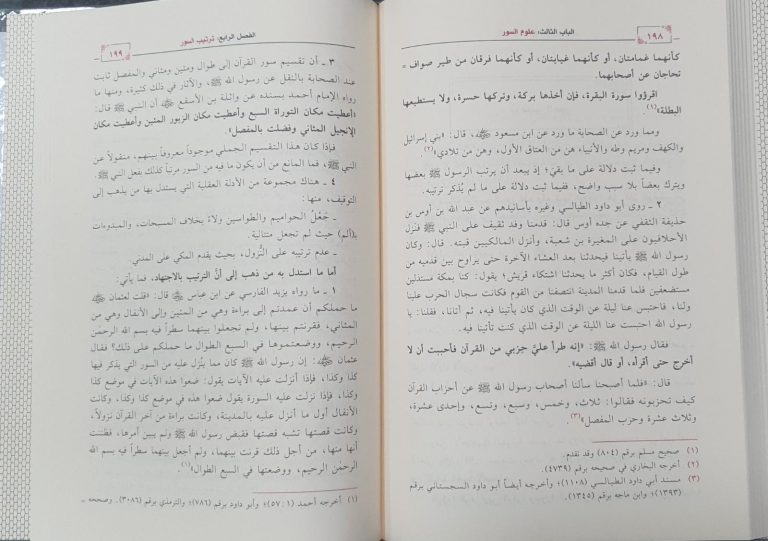 ١٩٨
الباب الثالث: علوم السور
كأنهما غمامتان، أو كأنهما غيايتان، أو كأنهما فرقان من طير صواف =
تحاجان عن أصحابهما.
اقرؤوا سورة البقرة، فإن أخذها بركة، وتركها حسرة، ولا يستطيعها
البطلة»(١).
ومما ورد عن الصحابة ما ورد عن ابن مسعود ﷺ، قال: «بني إسرائيل
والكهف ومريم وطه والأنبياء هن من العتاق الأول، وهن من تلادي»(٢)
وفيما ثبت دلالة على ما بقيَ؛ إذ يبعد أن يرتب الرسول ﷺ بعضها
ويترك بعضاً بلا سبب واضح، ففيما ثبت دلالة على ما لم يُذكر ترتيبه.
٢ ـ روى أبو داود الطيالسي وغيره بأسانيدهم عن عبد الله بن أوس بن
حذيفة الثقفي عن جده أوس قال: قدمنا وفد ثقيف على النبي ﷺ فنزل
الأحلافيون على المغيرة بن شعبة، وأنزل المالكيين قبته. قال: وكان
رسول الله ﷺ يأتينا فيحدثنا بعد العشاء الآخرة حتى يراوح بين قدميه من
طول القيام، فكان أكثر ما يحدثنا اشتكاء قريش؛ يقول: كنا بمكة مستذلين
مستضعفين فلما قدمنا المدينة انتصفنا من القوم فكانت سجال الحرب علينا
ولنا، فاحتبس عنا ليلة عن الوقت الذي كان يأتينا فيه، ثم أتانا، فقلنا: يا
رسول الله احتبست عنا الليلة عن الوقت الذي كنت تأتينا فيه.
فقال رسول الله ﷺ: «إنه طرأ عليَّ حزبي من القرآن فأحببت أن لا
أخرج حتى أقرأه، أو قال أقضيه».
قال: «فلما أصبحنا سألنا أصحاب رسول الله ﷺ عن أحزاب القرآن
كيف تحزبونه فقالوا: ثلاث، وخمس، وسبع، وتسع، وإحدى عشرة،
وثلاث عشرة وحزب المفصل»(٣)
(١) صحيح مسلم برقم (٨٠٤) وقد تقدم.
(٢) أخرجه البخاري في صحيحه برقم (٤٧٣٩).
(٣) مسند أبي داود الطيالسي (١١٠٨)؛ وأخرجه أيضاً أبو داود السجستاني برقم
(١٣٩٣)؛ وابن ماجه برقم (١٣٤٥).
الفصل الرابع: ترتيب السور
١٩٩
٣ ـ أن تقسيم سور القرآن إلى طوال ومئين ومثاني والمفصل ثابت
عند الصحابة بالنقل عن رسول الله ﷺ، والآثار في ذلك كثيرة، ومنها ما
رواه الإمام أحمد بسنده عن واثلة بن الأسقع أن النبي ﷺ قال:
«أعطيت مكان التوراة السبع وأعطيت مكان الزبور المئين وأعطيت مكان
الإنجيل المثاني وفضلت بالمفصل».
فإذا كان هذا التقسيم الجملي موجوداً معروفاً بينهم، منقولاً عن
النبي ﷺ، فما المانع من أن يكون ما فيه من السور مرتباً كذلك بفعل النبي ﷺ.
٤ ـ هناك مجموعة من الأدلة العقلية التي يستدل بها من يذهب إلى
التوقيف، منها:
ـ جَعْلُ الحواميم والطواسين ولاءً بخلاف المسبحات، والمبدوءات
بـ(ألم) حيث لم تجعل متتالية.
ـ عدم ترتيبه على النُّزول، بحيث يقدم المكي على المدني.
أما ما استدل به من ذهب إلى أنَّ الترتيب بالاجتهاد، فما يأتي:
١ ـ ما رواه يزيد الفارسي عن ابن عباس قال: «قلت لعثمان
ما حملكم أن عمدتم إلى براءة وهي من المئين وإلى الأنفال وهي من
المثاني، فقرنتم بينها، ولم تجعلوا بينهما سطراً فيه بسم الله الرحمٰن
الرحيم، ووضعتموها في السبع الطوال ما حملكم على ذلك؟ فقال
عثمان: إن رسول الله ﷺ كان مما ينْزل عليه من السور التي يذكر فيها
كذا وكذا، فإذا أنزلت عليه الآيات يقول: ضعوا هذه الآيات في موضع كذا
وكذا، فإذا أنزلت عليه السورة يقول ضعوا هذه في موضع كذا وكذا، وكانت
الأنفال أول ما أنزل عليه بالمدينة، وكانت براءة من آخر القرآن نزولاً،
وكانت قصتها تشبه قصتها فقبض رسول الله ﷺ ولم يبين أمرها، فظننت
أنها منها، من أجل ذلك قرنت بينهما، ولم أجعل بينهما سطراً فيه بسم الله
الرحمٰن الرحيم، ووضعتها في السبع الطوال»(١).
(١) أخرجه أحمد (١: ٥٧)؛ وأبو داود برقم (٧٨٦)؛ والترمذي برقم (٣٠٨٦). وصححه =